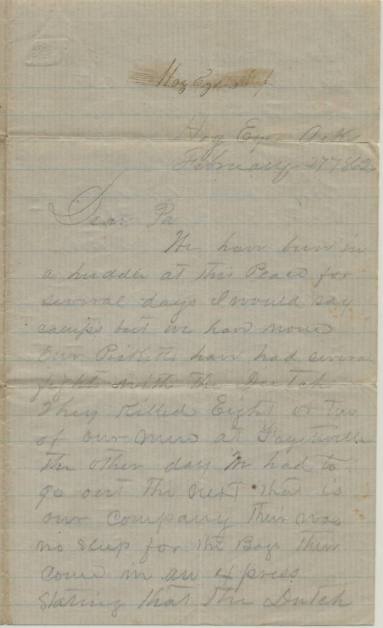 Hog Eye Ark
February 27 1862
Dear Pa
We have been in
a huddle at this Place for
several days I would say
camps but we have none
Our Picketts have had several
fights with the Dutch
They Killed Eight or Ten
of our men at Fayettville
the other day We had to
go out the next that is
our Company Their was
no sleep for the Boys Their
come in an express
stating that the Dutch